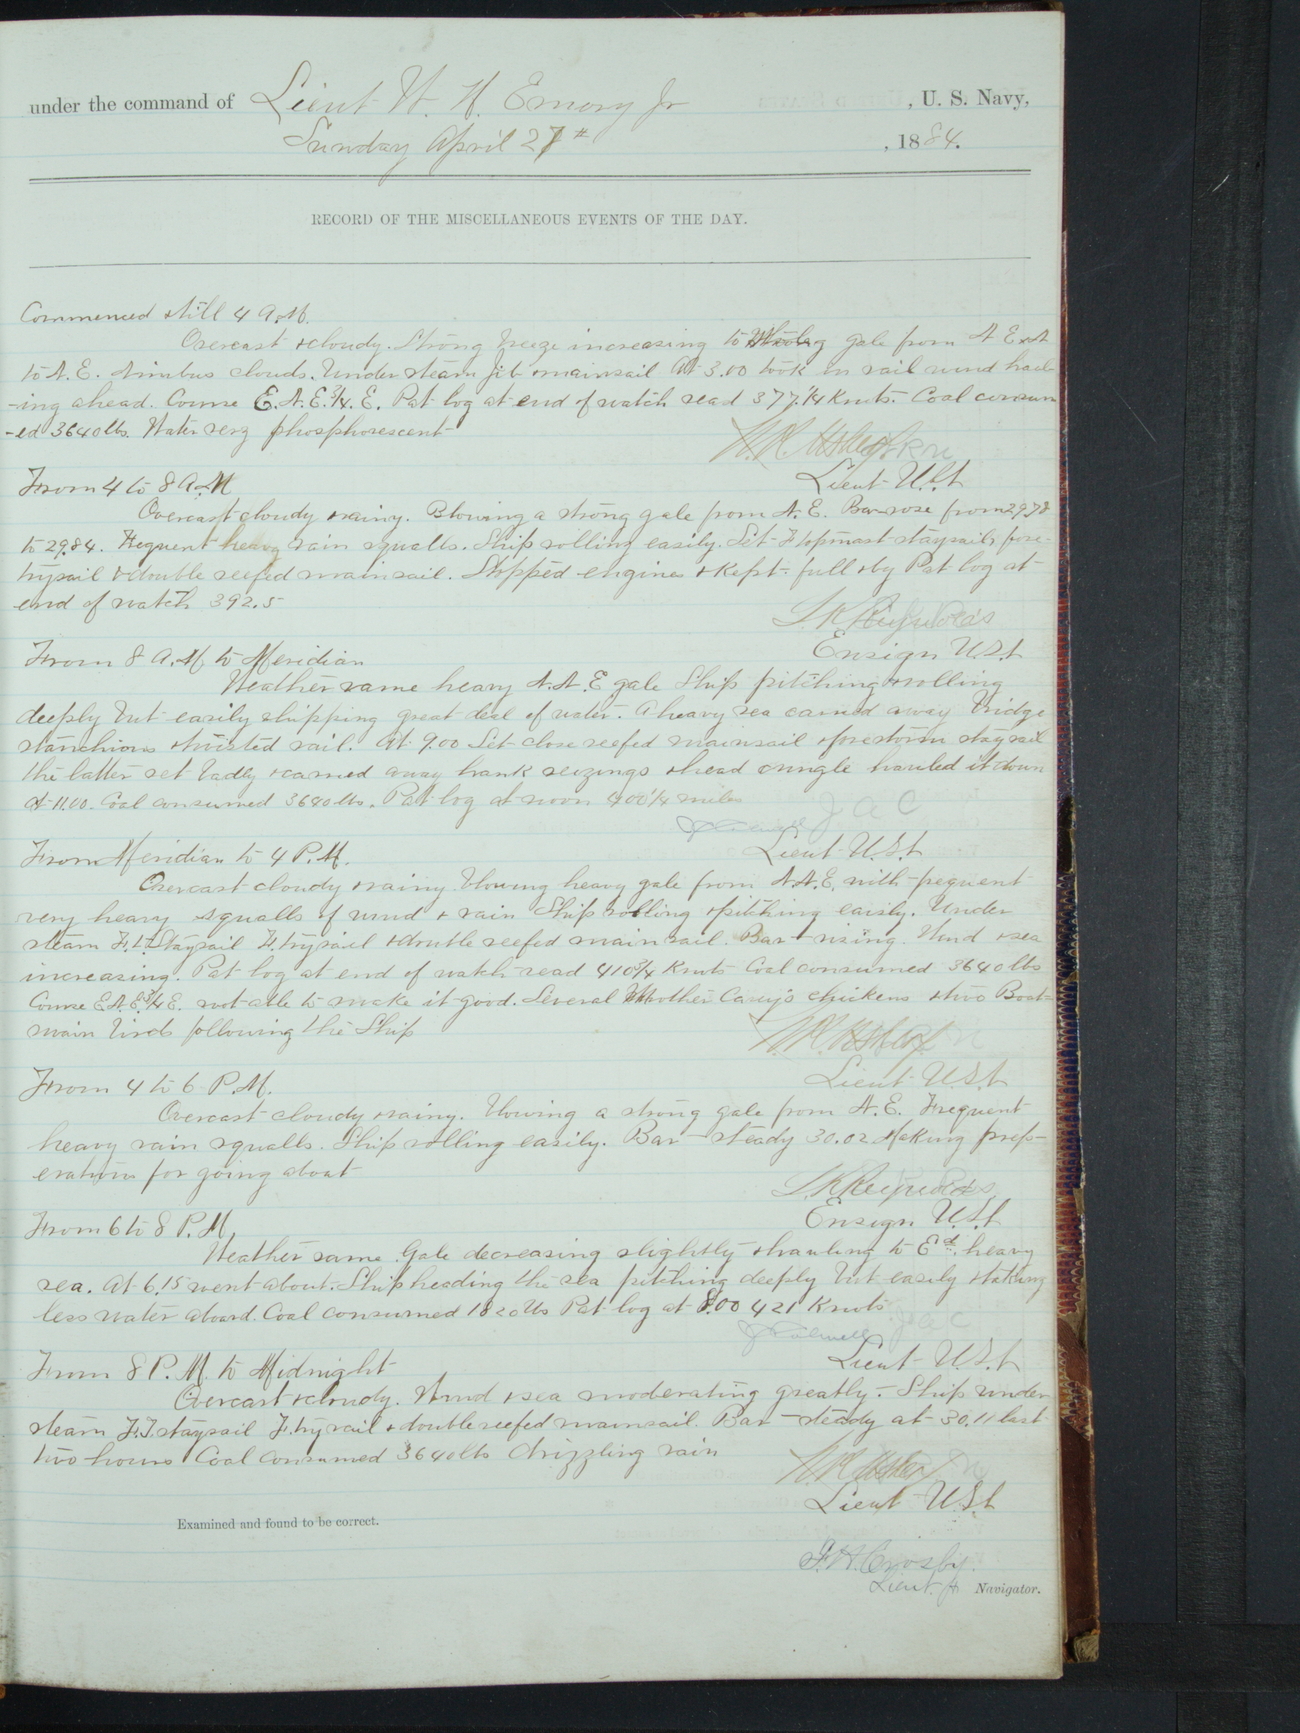 under the command of Lieut W. H. Emory Jr , U. S. Navy,
Sunday April 27th , 1884.
RECORD OF THE MISCELLANEOUS EVENTS OF THE DAY.
Commenced & till 4 A.M.
Overcast & cloudy. Strong breeze increasing to gale from N E x N
to N. E. Nimbus clouds. Under steam jib & mainsail At 3.00 took in sail wind haul-
-ing ahead. Course E. N. E. 3/4 E. Pat log at end of watch read 377. 1/4 Knots. Coal consum
-ed 3640 lbs. Water very phosphorescent
Lieut U.S.N
From 4 to 8 A.M
Overcast cloudy & rainy. Blowing a strong gale from N. E. Bar rose from 29.78
to 29.84. Frequent heavy rain squalls. Ship rolling easily. Set F topmast staysails, fore-
trysail & double reefed mainsail. Stopped engines & kept full & by Pat log at
end of watch 392.5
L. K. Reynolds
Ensign U.S.N
From 8 A.M to Meridian
Weather same heavy N.N.E gale Ship pitching & rolling
deeply but easily shipping great deal of water. A heavy sea carried away bridge
stanchions & twisted rail. At 9.00 Set close reefed mainsail & forestorm staysail
the latter set badly & carried away hank seizings & head cringle hauled it down
at 11.00. Coal consumed 3640 lbs. Pat log at noon 400 1/4 miles
J A C
Lieut U.S.N
From Meridian to 4 P.M.
Overcast cloudy & rainy. Blowing heavy gale from N.N.E. with frequent
very heavy squalls of wind & rain Ship rolling & pitching easily. Under
steam F.T. Staysail F. trysail & double reefed mainsail. Bar rising. Wind & sea
increasing. Pat log at end of watch read 410 3/4 Knots Coal consumed 3640 lbs
Course E.N.E. 3/4 E. not able to make it good. Several Mother Carey's chickens & two Boat-
swain birds following the Ship
Lieut U.S.N
From 4 to 6 P.M.
Overcast cloudy & rainy. Blowing a strong gale from N. E. Frequent
heavy rain squalls. Ship rolling easily. Bar steady 30.02 Making prep-
erations for going about
L. K. Reynolds
Ensign U.S.N
From 6 to 8 P.M
Weather same. Gale decreasing slightly & hauling to Ed. heavy
sea. At 6.15 went about. Ship heading the sea pitching deeply but easily & taking
less water aboard. Coal consumed 1820 lbs Pat log at 8.00 421 Knots
J A C
Lieut U.S.N
From 8 P.M. to Midnight
Overcast & cloudy. Wind & sea moderating greatly. Ship under
steam F.T. staysail F. trysail & double reefed mainsail. Bar steady at 30.11 last
two hours Coal consumed 3640 lbs drizzling rain
Lieut U.S.N
Examined and found to be correct.
F. H. Crosby.
Lieut. & Navigator.